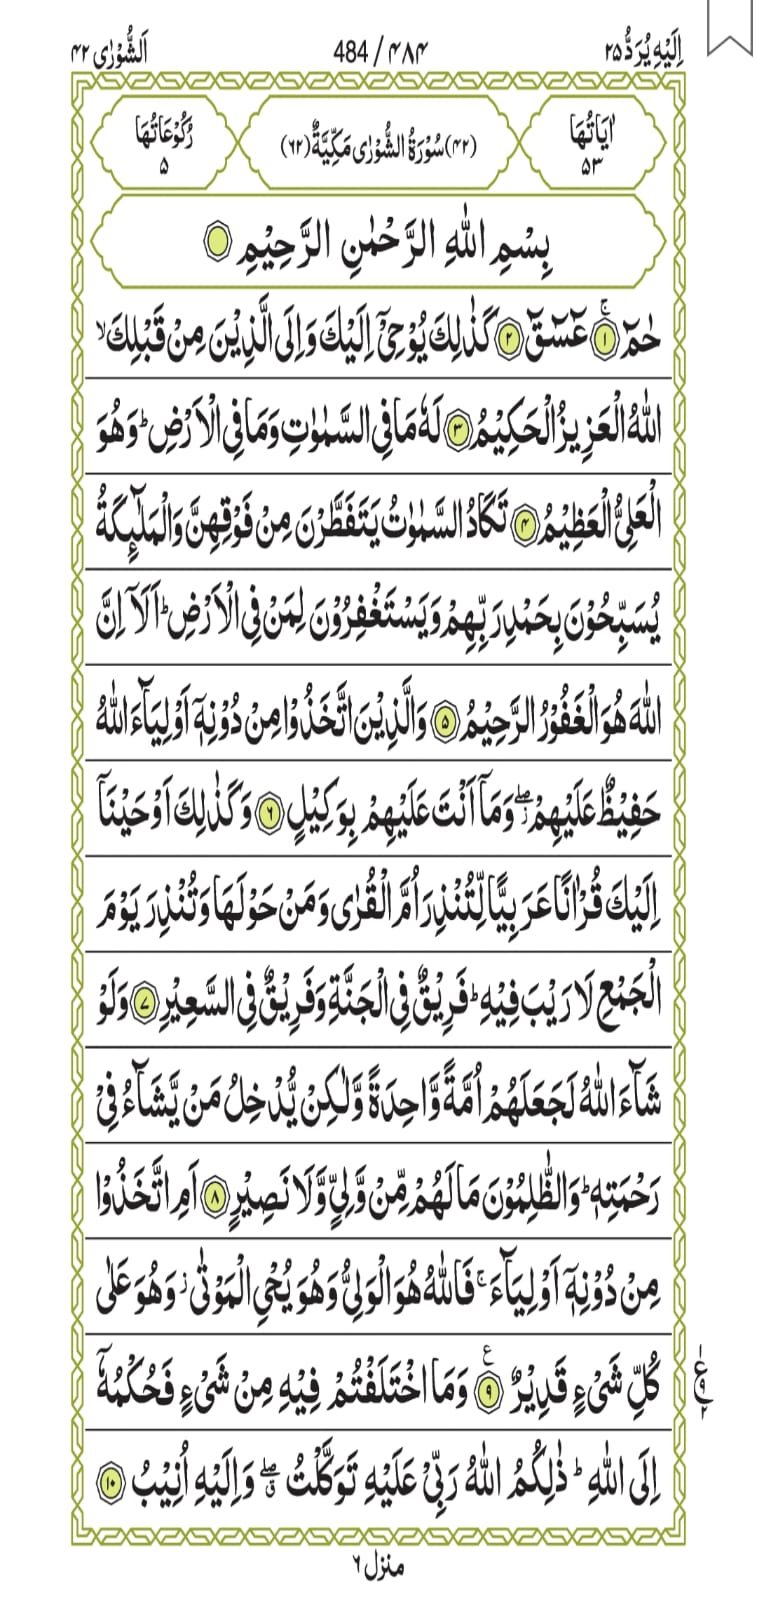 اِلَيْهِ يُرَدُّ ٢٥
484 / ۴۸۴
اَلشُّوْرٰى ۴۲
اٰيَاتُهَا ۵۳
(۴۲) سُوْرَةُ الشُّوْرٰى مَكِّيَّةٌ (۶۲)
رُكُوْعَاتُهَا ۵
بِسْمِ اللّٰهِ الرَّحْمٰنِ الرَّحِيْمِ
حٰمٓ ۚ﴿۱﴾ عٓسٓقٓ ﴿۲﴾ كَذٰلِكَ يُوْحِيْٓ اِلَيْكَ وَاِلَى الَّذِيْنَ مِنْ قَبْلِكَ ۙ
اللّٰهُ الْعَزِيْزُ الْحَكِيْمُ ﴿۳﴾ لَهٗ مَا فِي السَّمٰوٰتِ وَمَا فِي الْاَرْضِ ؕ وَهُوَ
الْعَلِيُّ الْعَظِيْمُ ﴿۴﴾ تَكَادُ السَّمٰوٰتُ يَتَفَطَّرْنَ مِنْ فَوْقِهِنَّ وَالْمَلٰٓئِكَةُ
يُسَبِّحُوْنَ بِحَمْدِ رَبِّهِمْ وَيَسْتَغْفِرُوْنَ لِمَنْ فِي الْاَرْضِ ؕ اَلَآ اِنَّ
اللّٰهَ هُوَ الْغَفُوْرُ الرَّحِيْمُ ﴿۵﴾ وَالَّذِيْنَ اتَّخَذُوْا مِنْ دُوْنِهٖٓ اَوْلِيَآءَ اللّٰهُ
حَفِيْظٌ عَلَيْهِمْ ۖز وَمَآ اَنْتَ عَلَيْهِمْ بِوَكِيْلٍ ﴿۶﴾ وَكَذٰلِكَ اَوْحَيْنَآ
اِلَيْكَ قُرْاٰنًا عَرَبِيًّا لِّتُنْذِرَ اُمَّ الْقُرٰى وَمَنْ حَوْلَهَا وَتُنْذِرَ يَوْمَ
الْجَمْعِ لَا رَيْبَ فِيْهِ ؕ فَرِيْقٌ فِي الْجَنَّةِ وَفَرِيْقٌ فِي السَّعِيْرِ ﴿۷﴾ وَلَوْ
شَآءَ اللّٰهُ لَجَعَلَهُمْ اُمَّةً وَّاحِدَةً وَّلٰكِنْ يُّدْخِلُ مَنْ يَّشَآءُ فِيْ
رَحْمَتِهٖ ؕ وَالظّٰلِمُوْنَ مَا لَهُمْ مِّنْ وَّلِيٍّ وَّلَا نَصِيْرٍ ﴿۸﴾ اَمِ اتَّخَذُوْا
مِنْ دُوْنِهٖٓ اَوْلِيَآءَ ۚ فَاللّٰهُ هُوَ الْوَلِيُّ وَهُوَ يُحْيِ الْمَوْتٰى ز وَهُوَ عَلٰى
كُلِّ شَيْءٍ قَدِيْرٌ ﴿۹﴾ ع وَمَا اخْتَلَفْتُمْ فِيْهِ مِنْ شَيْءٍ فَحُكْمُهٗٓ
اِلَى اللّٰهِ ؕ ذٰلِكُمُ اللّٰهُ رَبِّيْ عَلَيْهِ تَوَكَّلْتُ ۖق وَاِلَيْهِ اُنِيْبُ ﴿۱۰﴾
ع ۱ ۹ ۲
منزل ۶